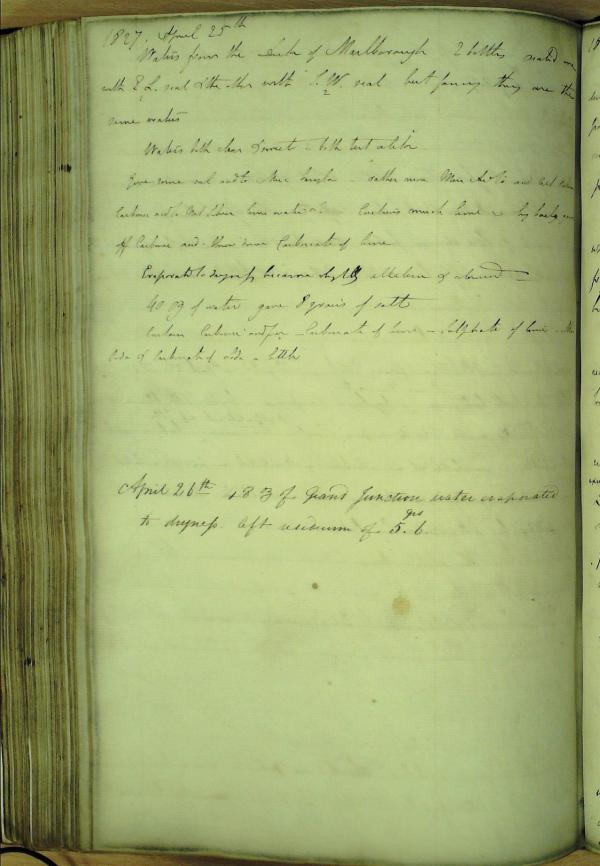 1827. April 25th
Waters from the Duke of Marlborough 2 bottles sealed one
with E L. seal & the other with S. W. seal but fancy they are the
same waters
Waters both clear & sweet - both test alike
Gave some sul acid to Mur baryta - rather more Mur
Carbonic acid to Lime water Contains much lime - by boiling
off Carbonic acid threw down Carbonate of lime
Evaporated to dryness became slightly alkaline
40 of water gave 8 grains of salts
Contain Carbonic acid free - Carbonate of lime - Sulphate of lime -
Soda & Carbonate of soda a little
April 26th 483 of Grand Junction water evaporated
to dryness left residuum of 5.6 grs